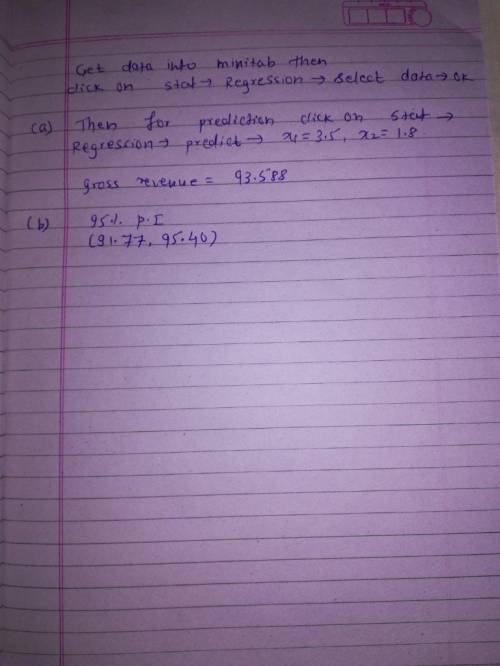 Get data into minitab then
click on stat → Regression → select data → OK
(a) Then for prediction click on stat →
Regression → predict → x1 = 3.5, x2 = 1.8
gross revenue = 93.588
(b) 95% P.I
(91.77, 95.40)